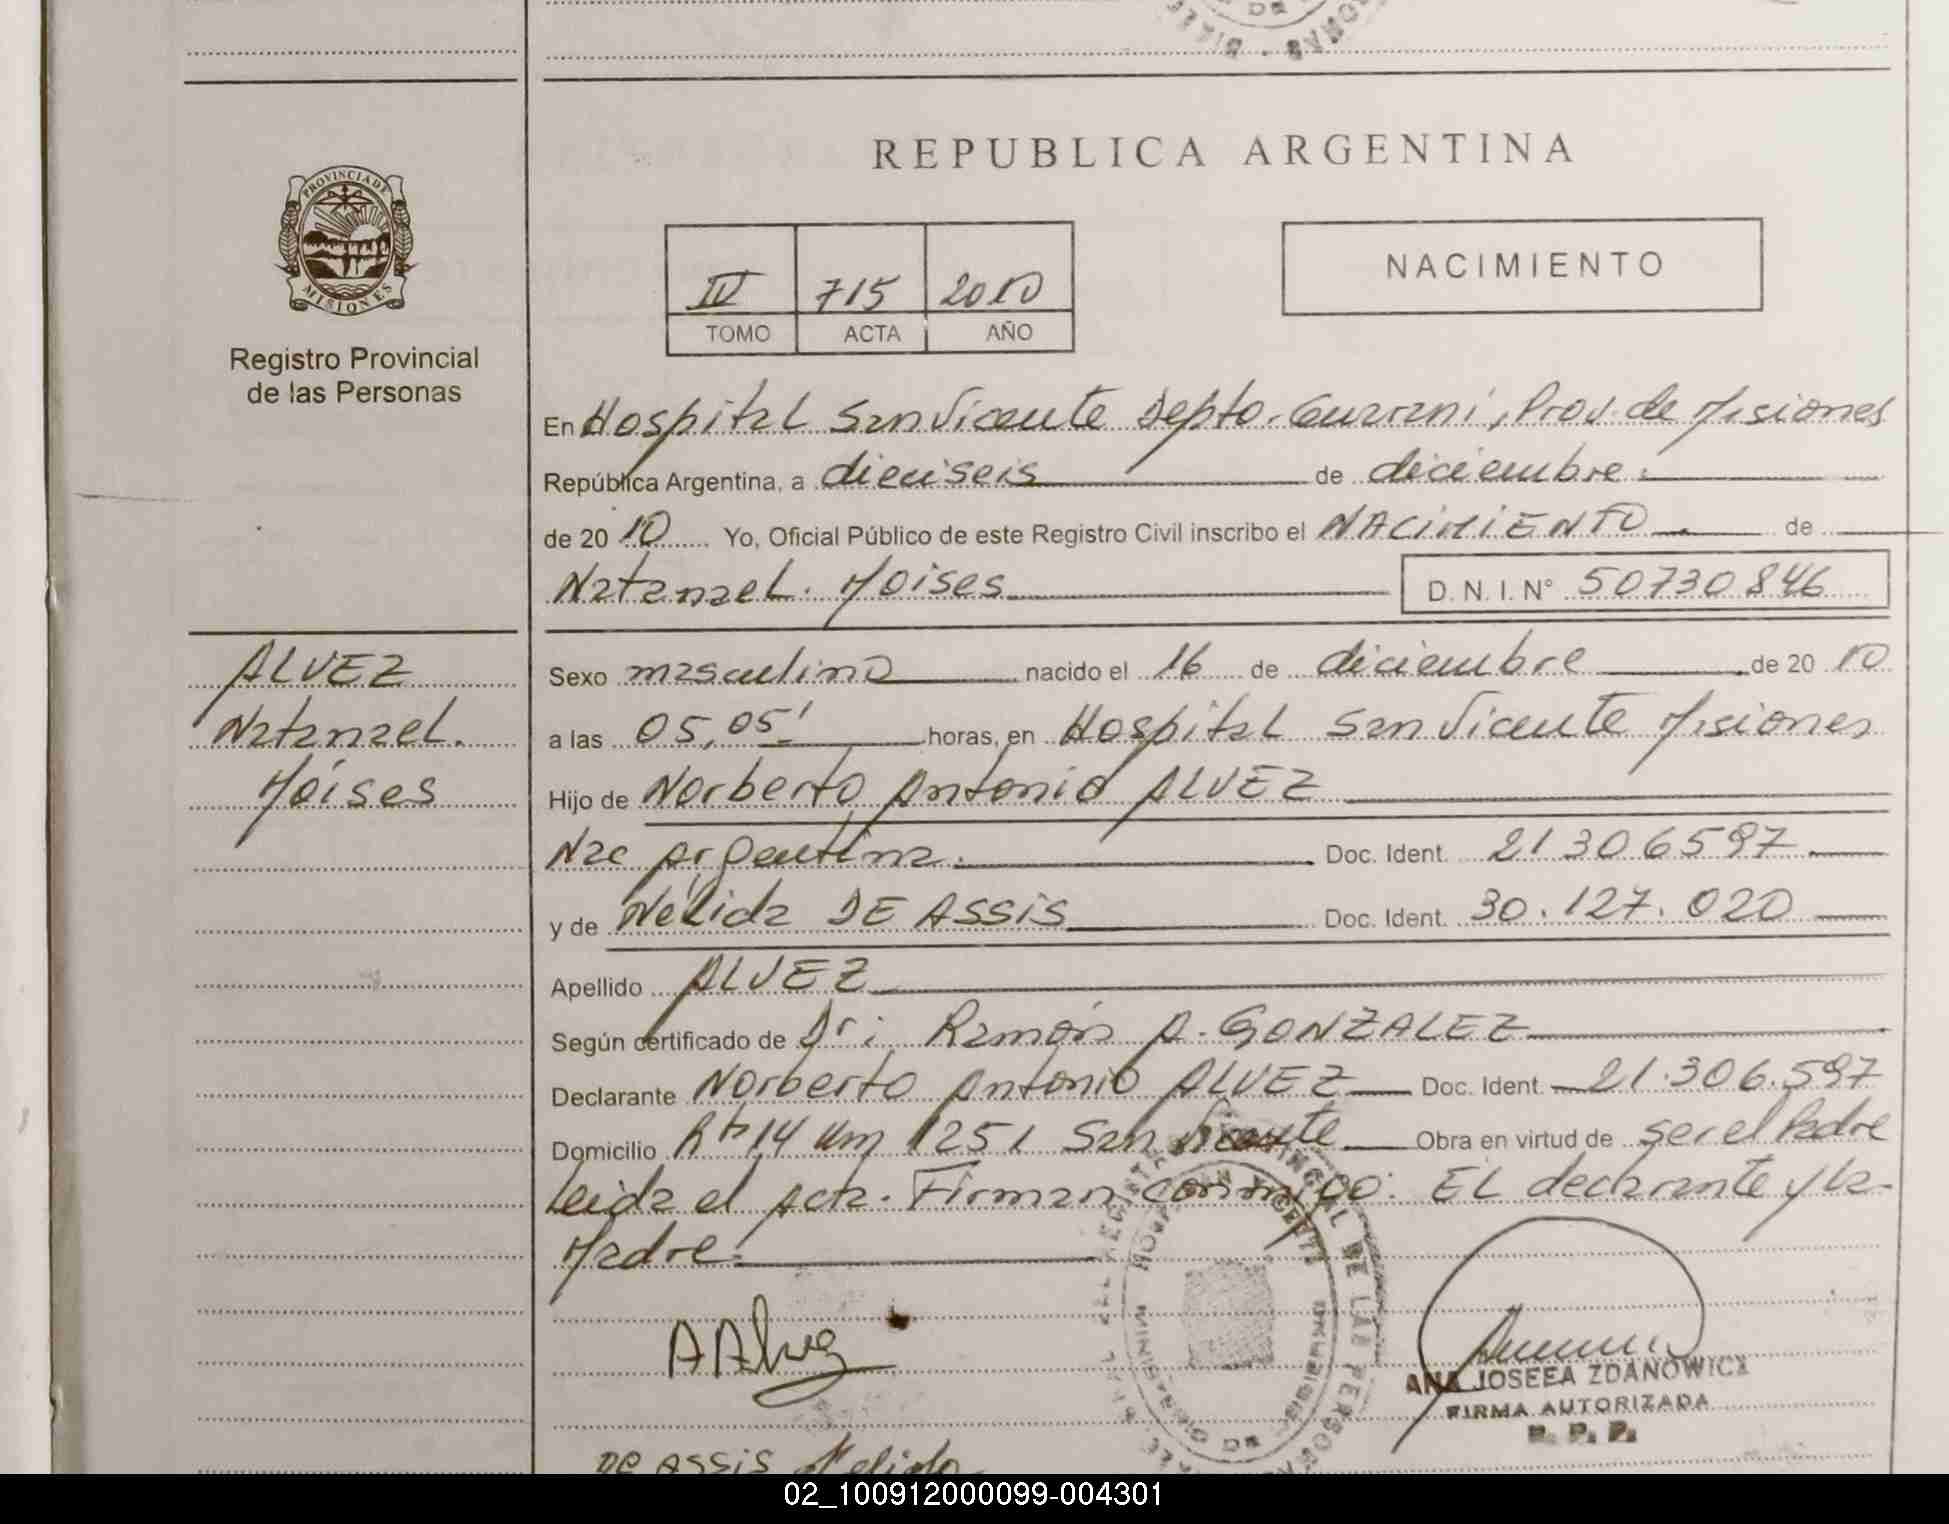 REPUBLICA ARGENTINA
PROVINCIA DE
MISIONES
Registro Provincial
de las Personas
IV 715 2010
TOMO ACTA AÑO
NACIMIENTO
En Hospital San Vicente Depto. Guarani, Prov. de Misiones
República Argentina, a dieciseis de diciembre.
de 20 10 Yo, Oficial Público de este Registro Civil inscribo el NACIMIENTO de
Natanael. Moises D. N. I. N° 50730846
ALVEZ
Natanael.
Moises
Sexo masculino nacido el 16 de diciembre de 20 10
a las 05,05' horas, en Hospital San Vicente Misiones
Hijo de Norberto Antonio ALVEZ
Nac Argentina. Doc. Ident. 21306597
y de Nélida DE ASSIS Doc. Ident. 30.127.020
Apellido ALVEZ
Según certificado de Dr: Ramón A. GONZALEZ
Declarante Norberto Antonio ALVEZ Doc. Ident. 21.306.597
Domicilio Rta 14 Km 1251 San Vicente Obra en virtud de ser el Padre
Leida el Acta. Firman conmigo: El declarante y la
Madre.
A Alvez
ANA JOSEFA ZDANOWICZ
FIRMA AUTORIZADA
R. P. P.
DE ASSIS Nelida
02_100912000099-004301